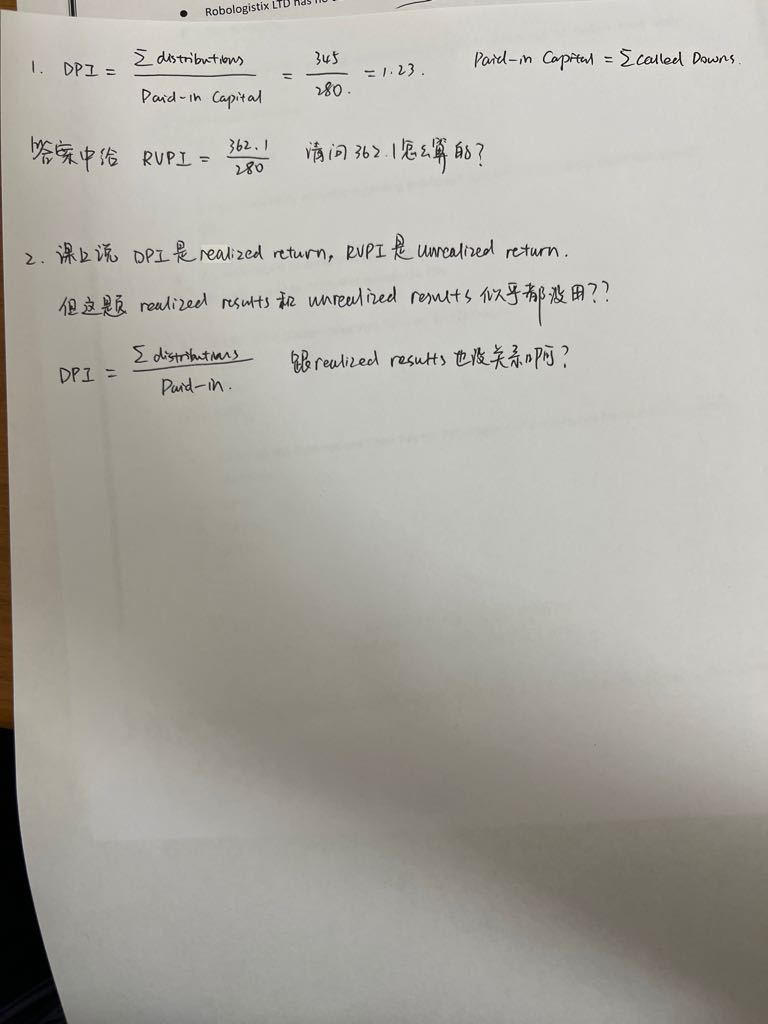 Robologistix LTD has no
1. DPI = Σ distributions / Paid-in Capital = 345 / 280. = 1.23. Paid-in Capital = Σ called Downs.
答案中给 RVPI = 362.1 / 280 请问 362.1 怎么算的?
2. 课上说 DPI是 realized return, RVPI是 unrealized return.
但这题 realized results 和 unrealized results 似乎都没用??
DPI = Σ distributions / Paid-in. 跟realized results 也没关系啊?